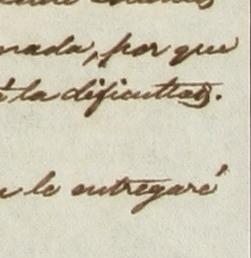 nada, por que
á la dificultad.
le entregaré